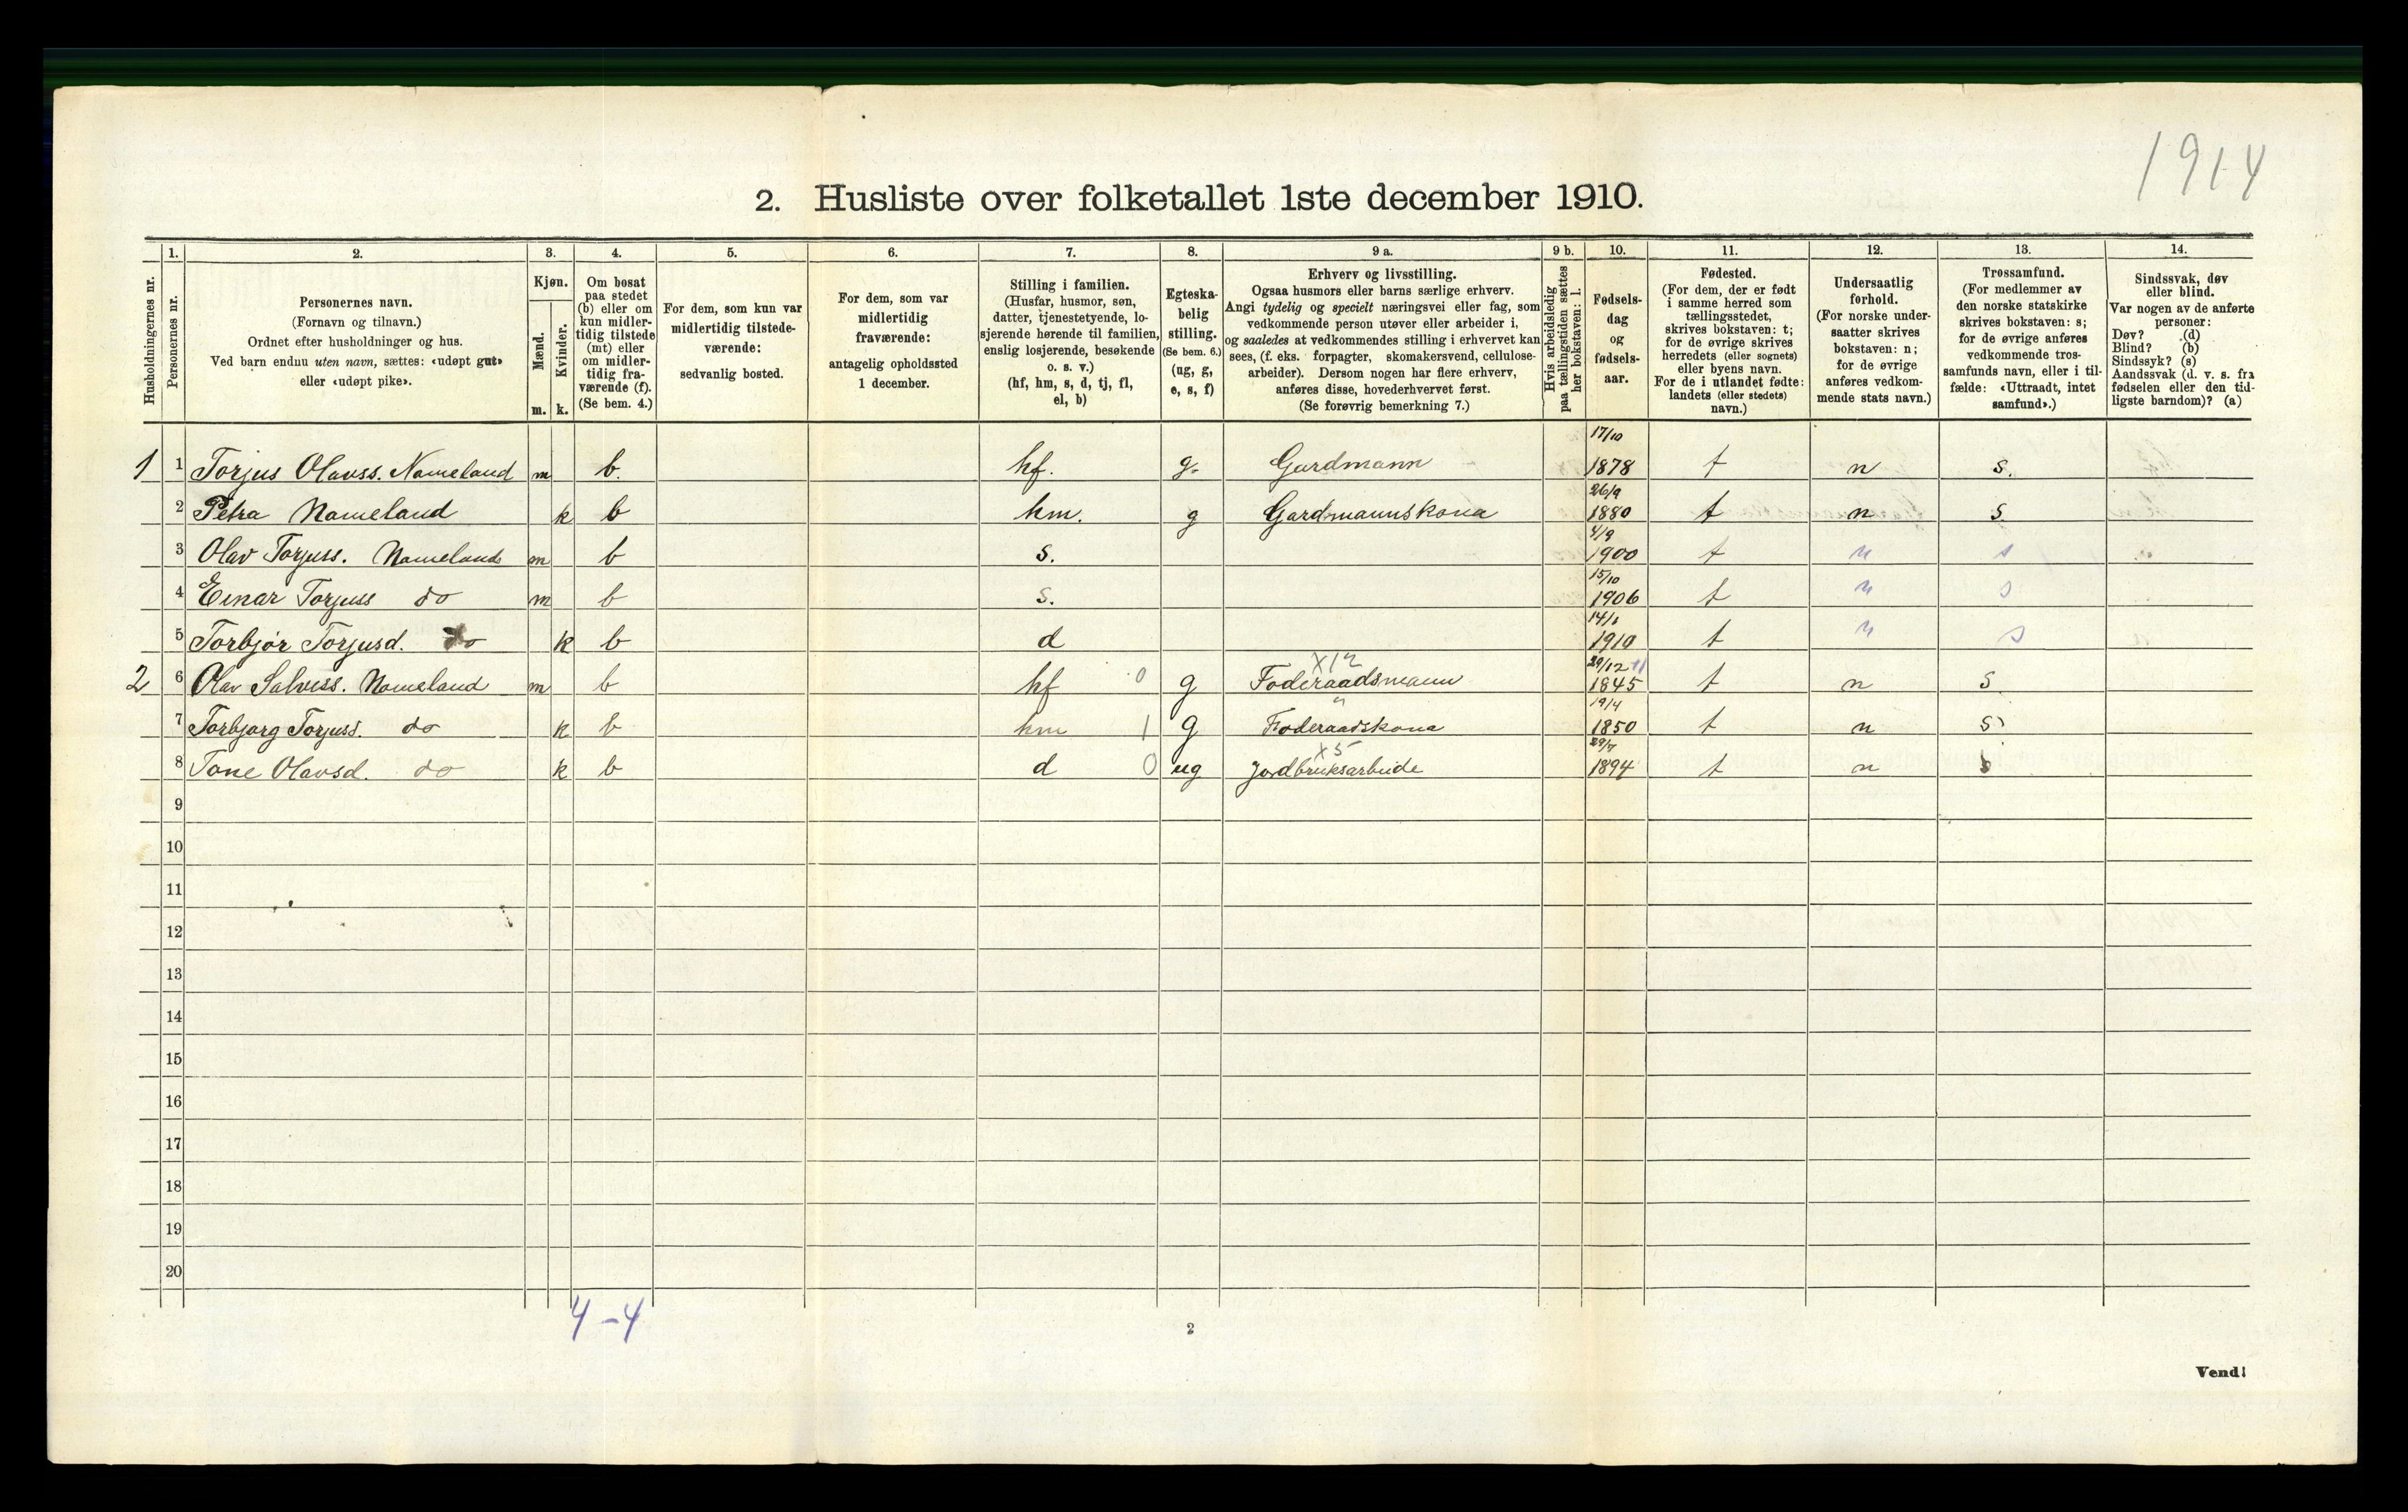 1914
2. Husliste over folketallet 1ste december 1910.
Husholdningernes nr.
1.
Personernes nr.
2.
Personernes navn.
(Fornavn og tilnavn.)
Ordnet efter husholdninger og hus.
Ved barn endnu uten navn, sættes: «udøpt gut»
eller «udøpt pike».
3.
Kjøn.
Mænd.
m.
Kvinder.
k.
4.
Om bosat
paa stedet
(b) eller om
kun midler-
tidig tilstede
(mt) eller
om midler-
tidig fra-
værende (f).
(Se bem. 4.)
5.
For dem, som kun var
midlertidig tilstede-
værende:
sedvanlig bosted.
6.
For dem, som var
midlertidig
fraværende:
antagelig opholdssted
1 december.
7.
Stilling i familien.
(Husfar, husmor, søn,
datter, tjenestetyende, lo-
sjerende hørende til familien,
enslig losjerende, besøkende
o. s. v.)
(hf, hm, s, d, tj, fl,
el, b)
8.
Egteska-
belig
stilling.
(Se bem. 6.)
(ug, g,
e, s, f)
9 a.
Erhverv og livsstilling.
Ogsaa husmors eller barns særlige erhverv.
Angi tydelig og specielt næringsvei eller fag, som
vedkommende person utøver eller arbeider i,
og saaledes at vedkommendes stilling i erhvervet kan
sees, (f. eks. forpagter, skomakersvend, cellulose-
arbeider). Dersom nogen har flere erhverv,
anføres disse, hovederhvervet først.
(Se forøvrig bemerkning 7.)
9 b.
Hvis arbeidsledig
paa tællingstiden sættes
her bokstaven: l.
10.
Fødsels-
dag
og
fødsels-
aar.
11.
Fødested.
(For dem, der er født
i samme herred som
tællingsstedet,
skrives bokstaven: t;
for de øvrige skrives
herredets (eller sognets)
eller byens navn.
For de i utlandet fødte:
landets (eller stedets)
navn.)
12.
Undersaatlig
forhold.
(For norske under-
saatter skrives
bokstaven: n;
for de øvrige
anføres vedkom-
mende stats navn.)
13.
Trossamfund.
(For medlemmer av
den norske statskirke
skrives bokstaven: s;
for de øvrige anføres
vedkommende tros-
samfunds navn, eller i til-
fælde: «Uttraadt, intet
samfund».)
14.
Sindssvak, døv
eller blind.
Var nogen av de anførte
personer:
Døv? (d)
Blind? (b)
Sindssyk? (s)
Aandssvak (d. v. s. fra
fødselen eller den tid-
ligste barndom)? (a)
1 1 Torjus Olavss. Nomeland m b. hf. g. Gardmann 17/10 1878 t n s.
2 Petra Nomeland k b hm. g Gardmannskona 26/9 1880 t n s.
3 Olav Torjuss. Nomeland m b s. 4/9 1900 t n s
4 Einar Torjuss do m b s. 15/10 1906 t n s
5 Torbjør Torjusd. do k b d 14/1 1910 t n s
2 6 Olav Salvess. Nomeland m b hf 0 g X12 Foderaadsmann 29/12 1845 t n s.
7 Torbjorg Torjusd. do k b hm 1 g " Foderaadskona 19/4 1850 t n s
8 Tone Olavsd. do k b d 0 ug X5 Jordbruksarbeide 29/7 1894 t n s
9
10
11
12
13
14
15
16
17
18
19
20
4 - 4
2
Vend!